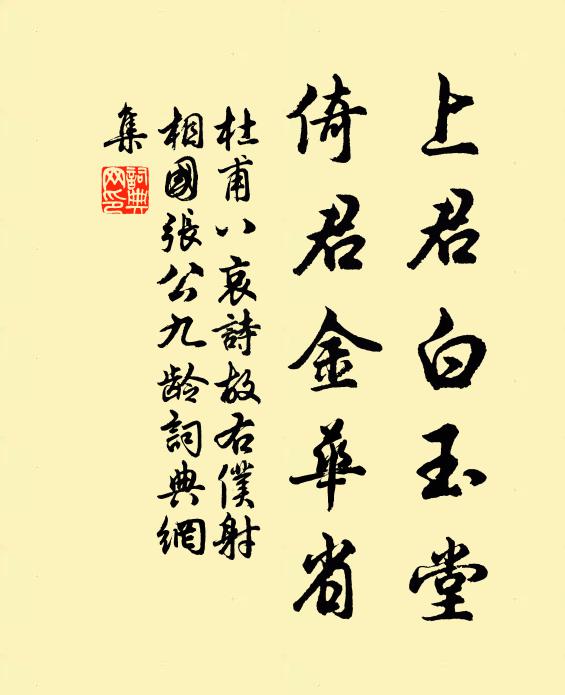 上君白玉堂
倚君金華省
杜甫八哀詩故右僕射
相國張公九龄詞典網
集
詞典
网印